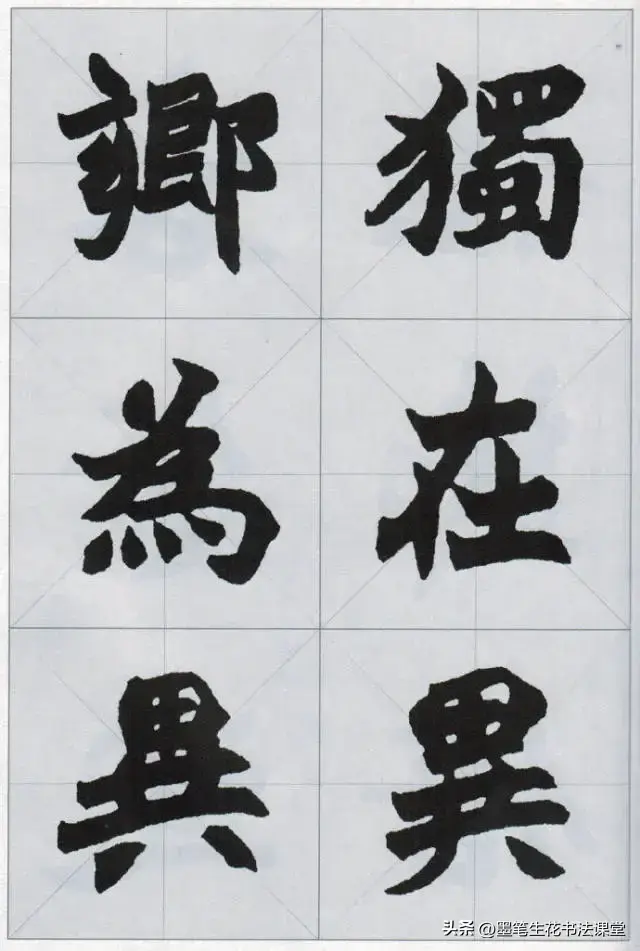 獨在異
鄉為異
头条 @墨笔生花书法课堂